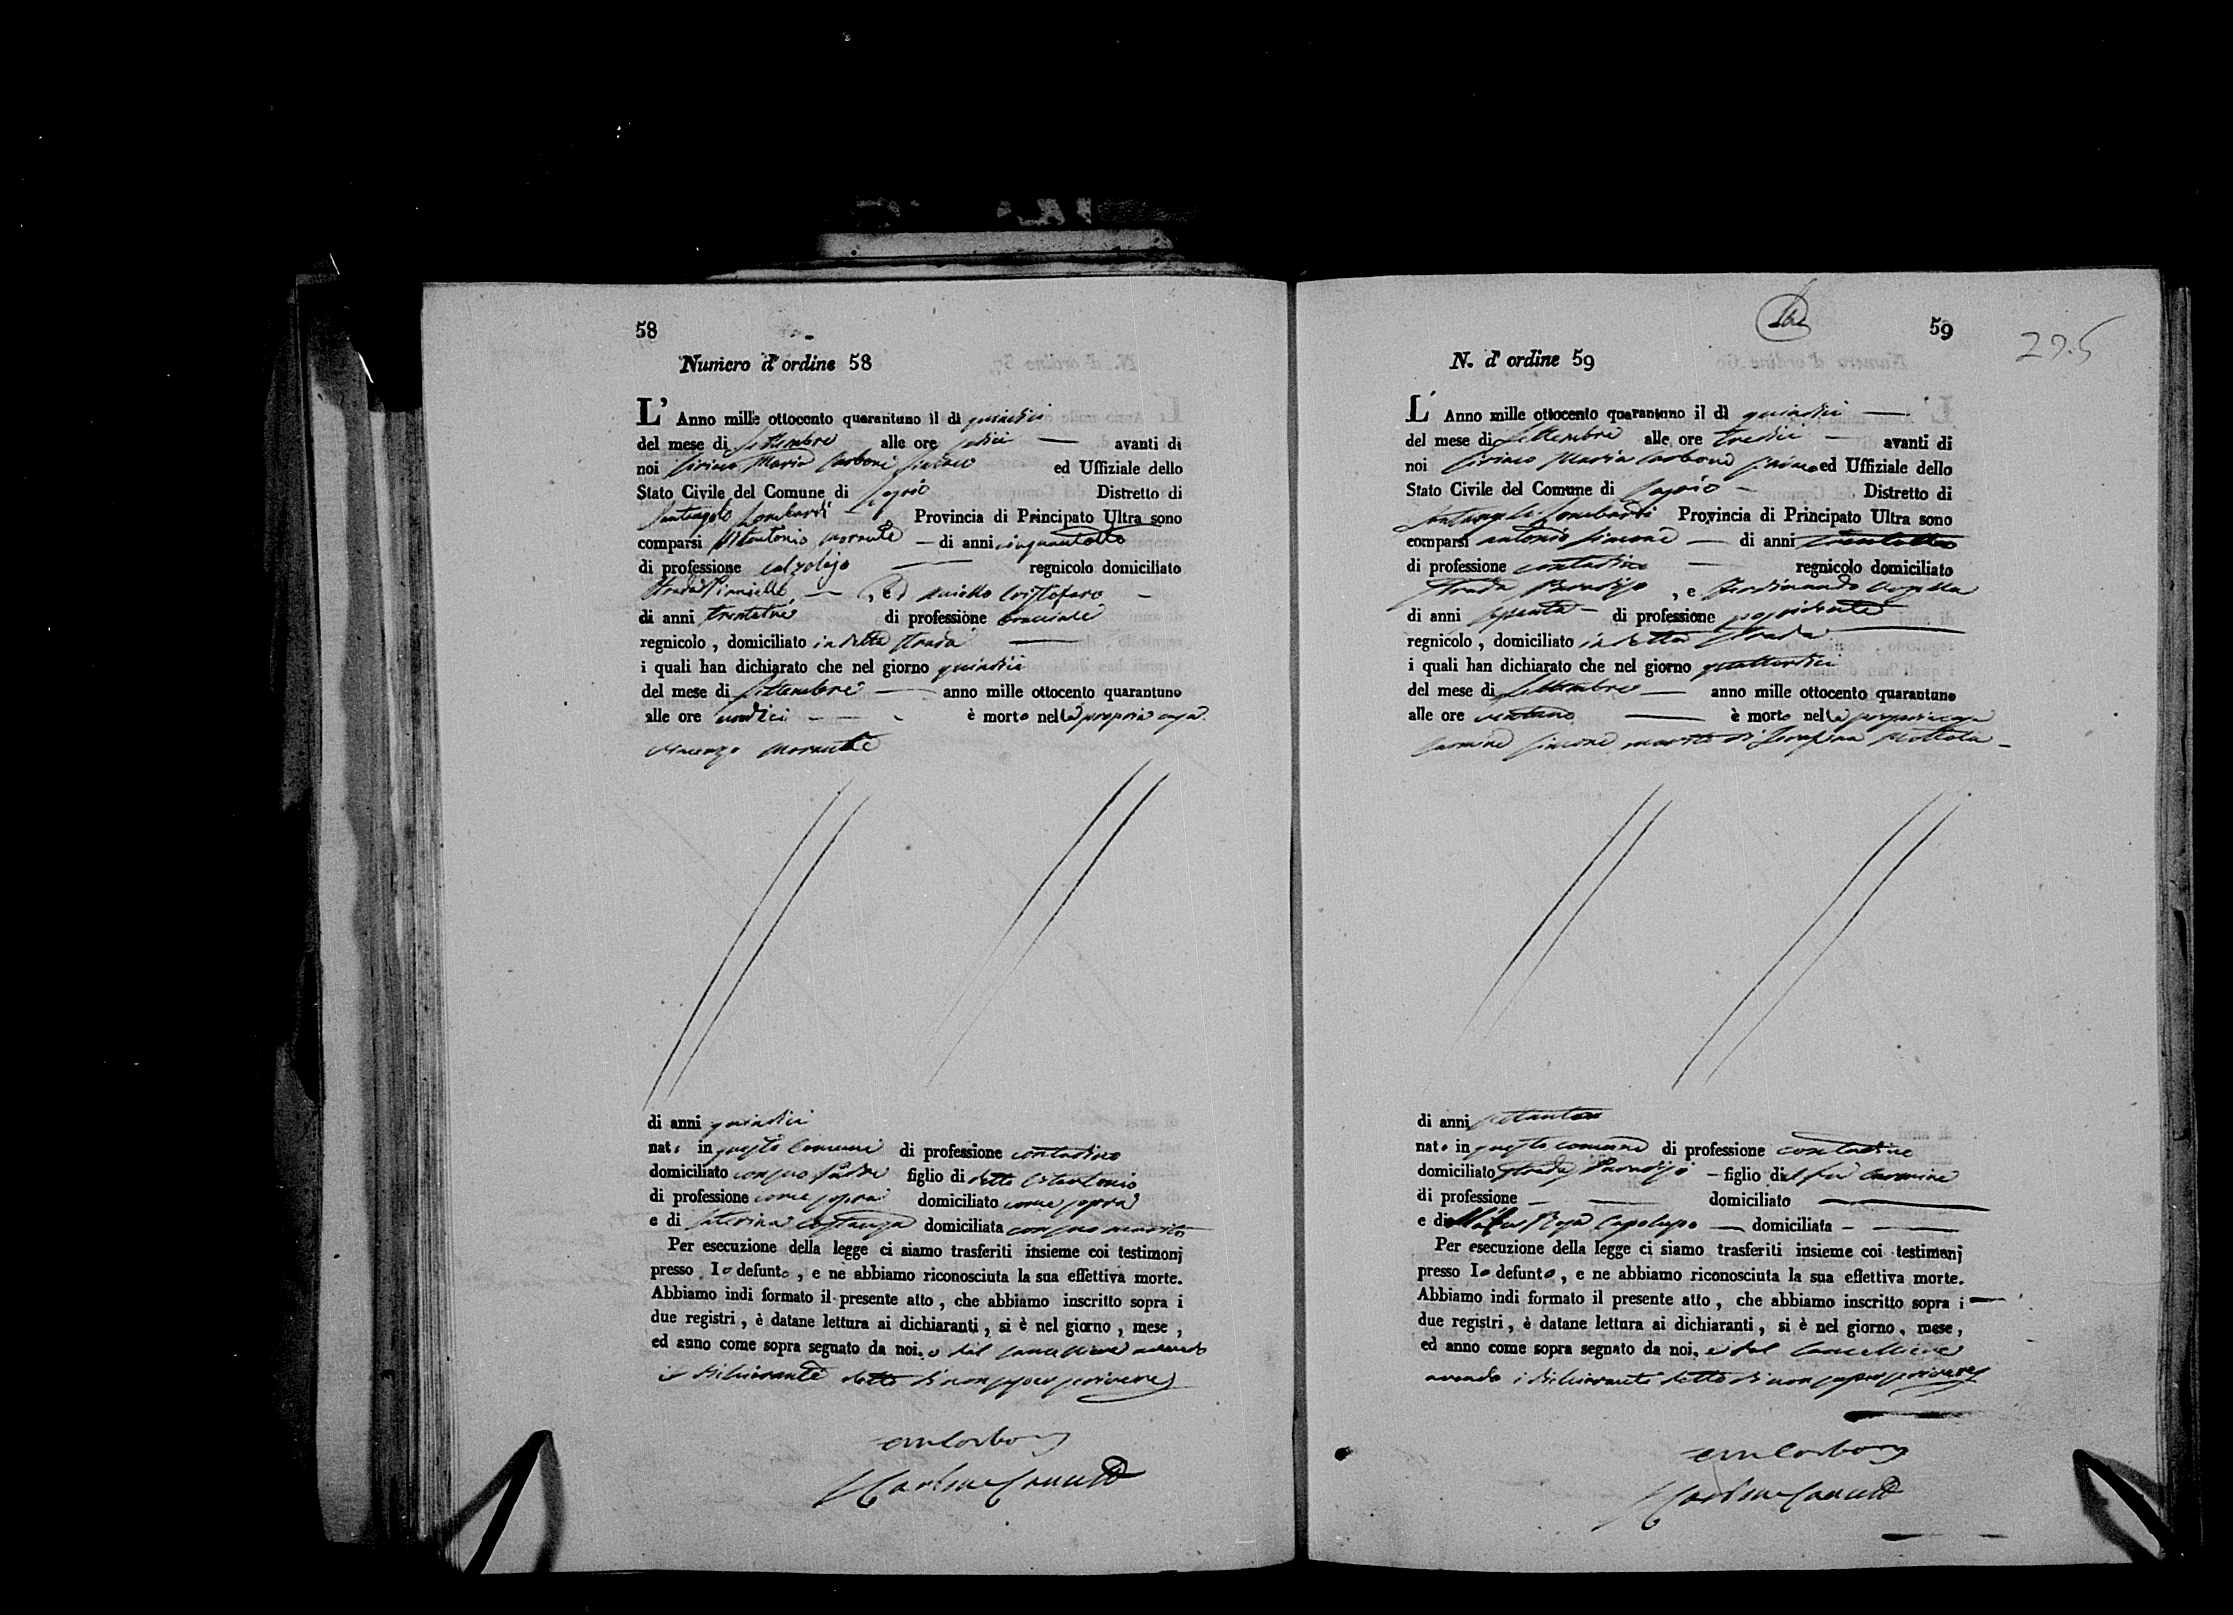 58
Numero d'ordine 58
L' Anno mille ottocento quarantuno il dì quindici
del mese di Settembre alle ore sedici — avanti di
noi Ciriaco Maria Carbone Sindaco ed Uffiziale dello
Stato Civile del Comune di Distretto di
Santangelo Lombardi — Provincia di Principato Ultra sono
comparsi Morante — di anni cinquantotto
di professione calzolajo — regnicolo domiciliato
Strada — , ed Aniello Cristofaro —
di anni trentatre di professione bracciale
regnicolo , domiciliato in detta strada —
i quali han dichiarato che nel giorno quindici
del mese di Settembre — anno mille ottocento quarantuno
alle ore undici — è morto nella propria casa
Vincenzo Morante
di anni quindici
nato in questo Comune di professione contadino
domiciliato con suo padre figlio di detto
di professione come sopra domiciliato come sopra
e di Caterina Costanza domiciliata con suo marito
Per esecuzione della legge ci siamo trasferiti insieme coi testimonj
presso lo defunto , e ne abbiamo riconosciuta la sua effettiva morte.
Abbiamo indi formato il presente atto , che abbiamo inscritto sopra i
due registri , è datane lettura ai dichiaranti , si è nel giorno , mese ,
ed anno come sopra segnato da noi. e dal Cancelliere avendo
i dichiaranti detto di non saper scrivere
59
295
N. d' ordine 59
L' Anno mille ottocento quarantuno il dì quindici —
del mese di Settembre alle ore tredici — avanti di
noi Ciriaco Maria Carbone Sindaco ed Uffiziale dello
Stato Civile del Comune di — Distretto di
Santangelo Lombardi Provincia di Principato Ultra sono
comparsi Antonio Simone — di anni trentotto
di professione contadino — regnicolo domiciliato
Strada Paradiso , e Ferdinando
di anni — di professione possidente
regnicolo , domiciliato in detta strada —
i quali han dichiarato che nel giorno quattordici
del mese di Settembre — anno mille ottocento quarantuno
alle ore ventuno — è morto nella propria casa
Carmine Simone marito di Serafina —
di anni
nato in questo comune di professione contadino
domiciliato strada Paradiso — figlio del fu Carmine
di professione — domiciliato —
e di Rosa Capolupo — domiciliata —
Per esecuzione della legge ci siamo trasferiti insieme coi testimonj
presso lo defunto , e ne abbiamo riconosciuta la sua effettiva morte.
Abbiamo indi formato il presente atto , che abbiamo inscritto sopra i —
due registri , è datane lettura ai dichiaranti , si è nel giorno , mese ,
ed anno come sopra segnato da noi. e dal Cancelliere
avendo i dichiaranti detto di non saper scrivere